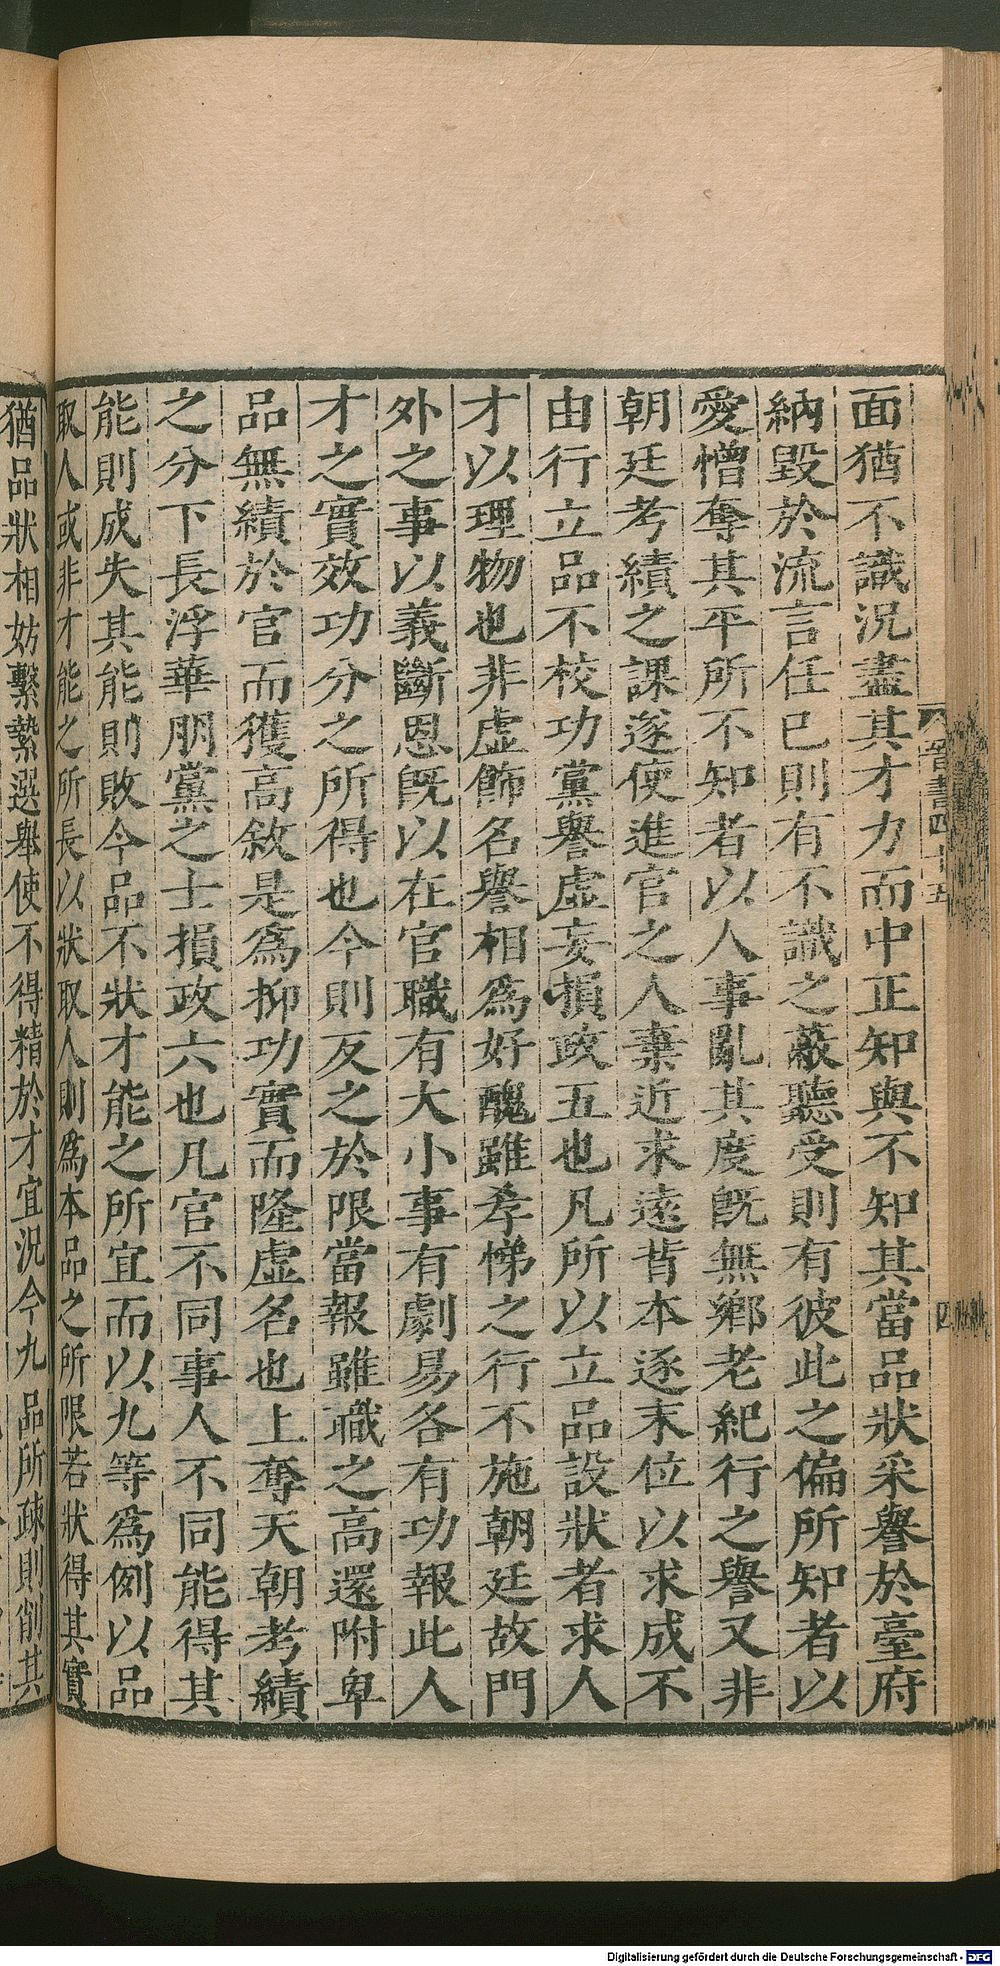 面猶不識況盡其才力而中正知與不知其當品狀采譽於臺府
納毀於流言任已則有不識之蔽聽受則有彼此之偏所知者以
愛憎奪其平所不知者以人事亂其度既無鄉老紀行之譽又非
朝廷考績之課遂使進官之人棄近求遠背本逐末位以求成不
由行立品不校功黨譽虛妄損政五也凡所以立品設狀者求人
才以理物也非虛飾名譽相爲好醜雖孝悌之行不施朝廷故門
外之事以義斷恩既以在官職有大小事有劇易各有功報此人
才之實效功分之所得也今則反之於限當報雖職之高還附卑
品無績於官而獲高敘是爲抑功實而隆虛名也上奪天朝考績
之分下長浮華朋黨之士損政六也凡官不同事人不同能得其
能則成失其能則敗今品不狀才能之所宜而以九等爲例以品
取人或非才能之所長以狀取人則爲本品之所限若狀得其實
猶品狀相妨繫縶選舉使不得精於才宜況今九品所疎則削其
晉書四十五
四
Digitalisierung gefördert durch die Deutsche Forschungsgemeinschaft - DFG